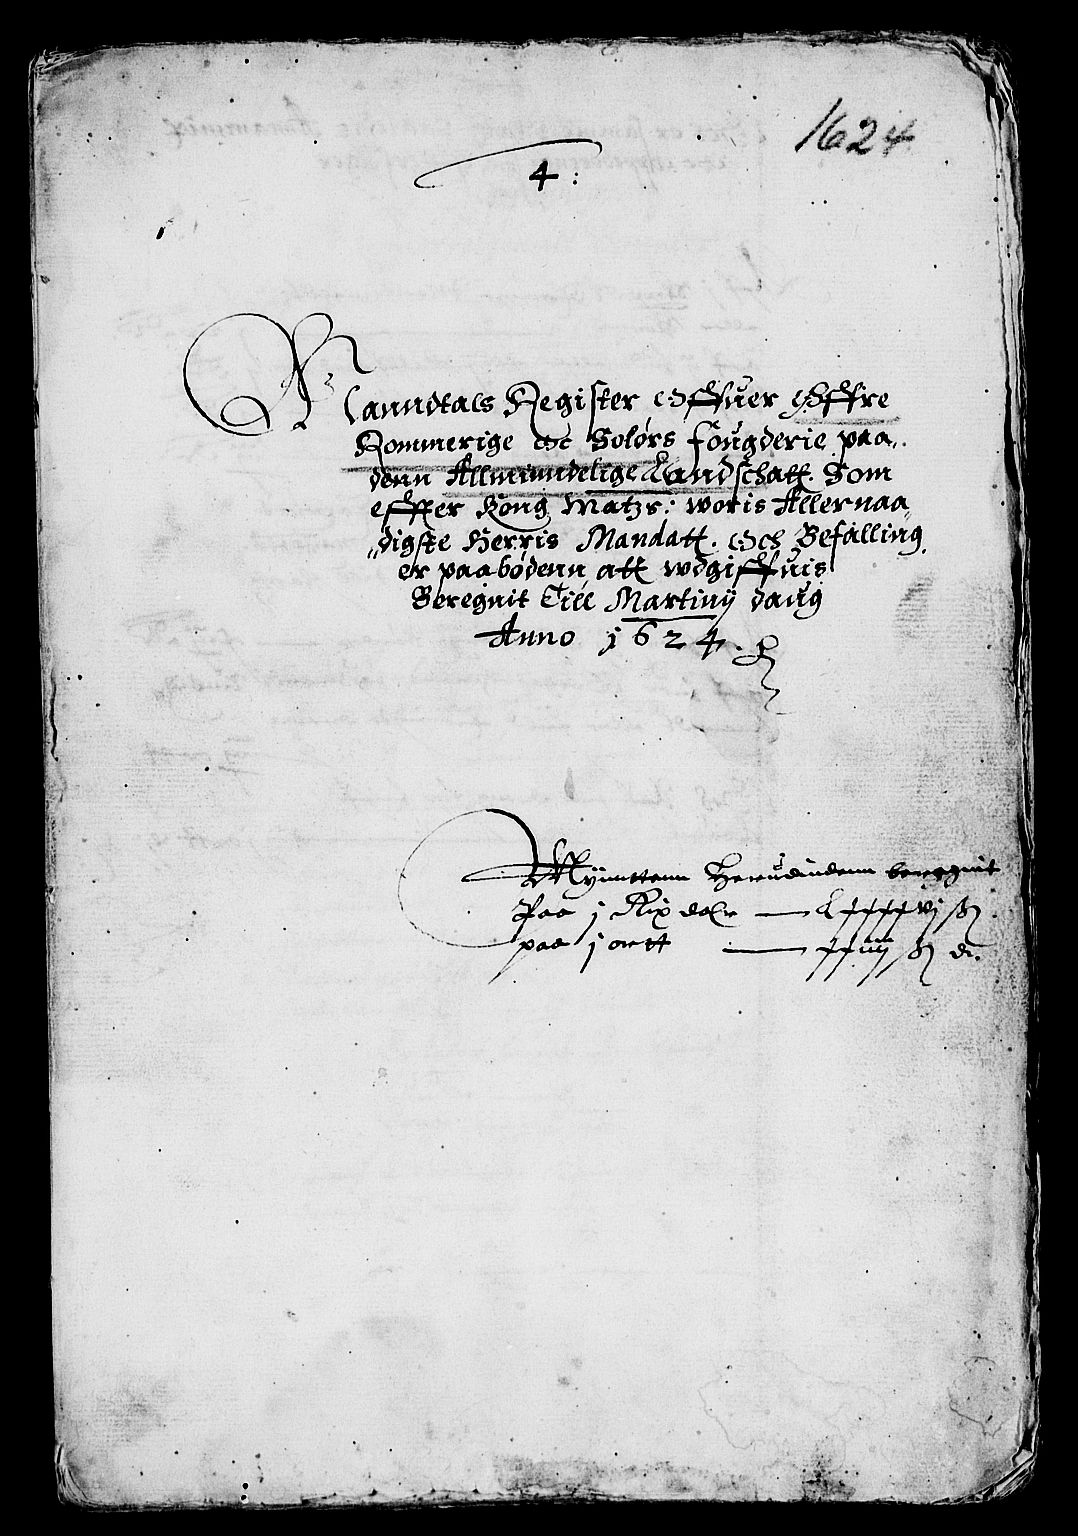 1624
4:
Manndtals Register Offuer Øffre
Rommerige oc Solørs fougderie paa
denn Allmiundelige Landschatt. Som
effter Kong Matzs: woris Allernaa
digste Herris Mandatt. Och Befalling
er paabødenn att wdgiffuis
Beregnit Till Martinij daug
Anno 1624.
Mynnttenn Herudindenn beregnit
Paa j Rix dalr — Lxxxxvj ß
paa j ortt — xxiiij ß